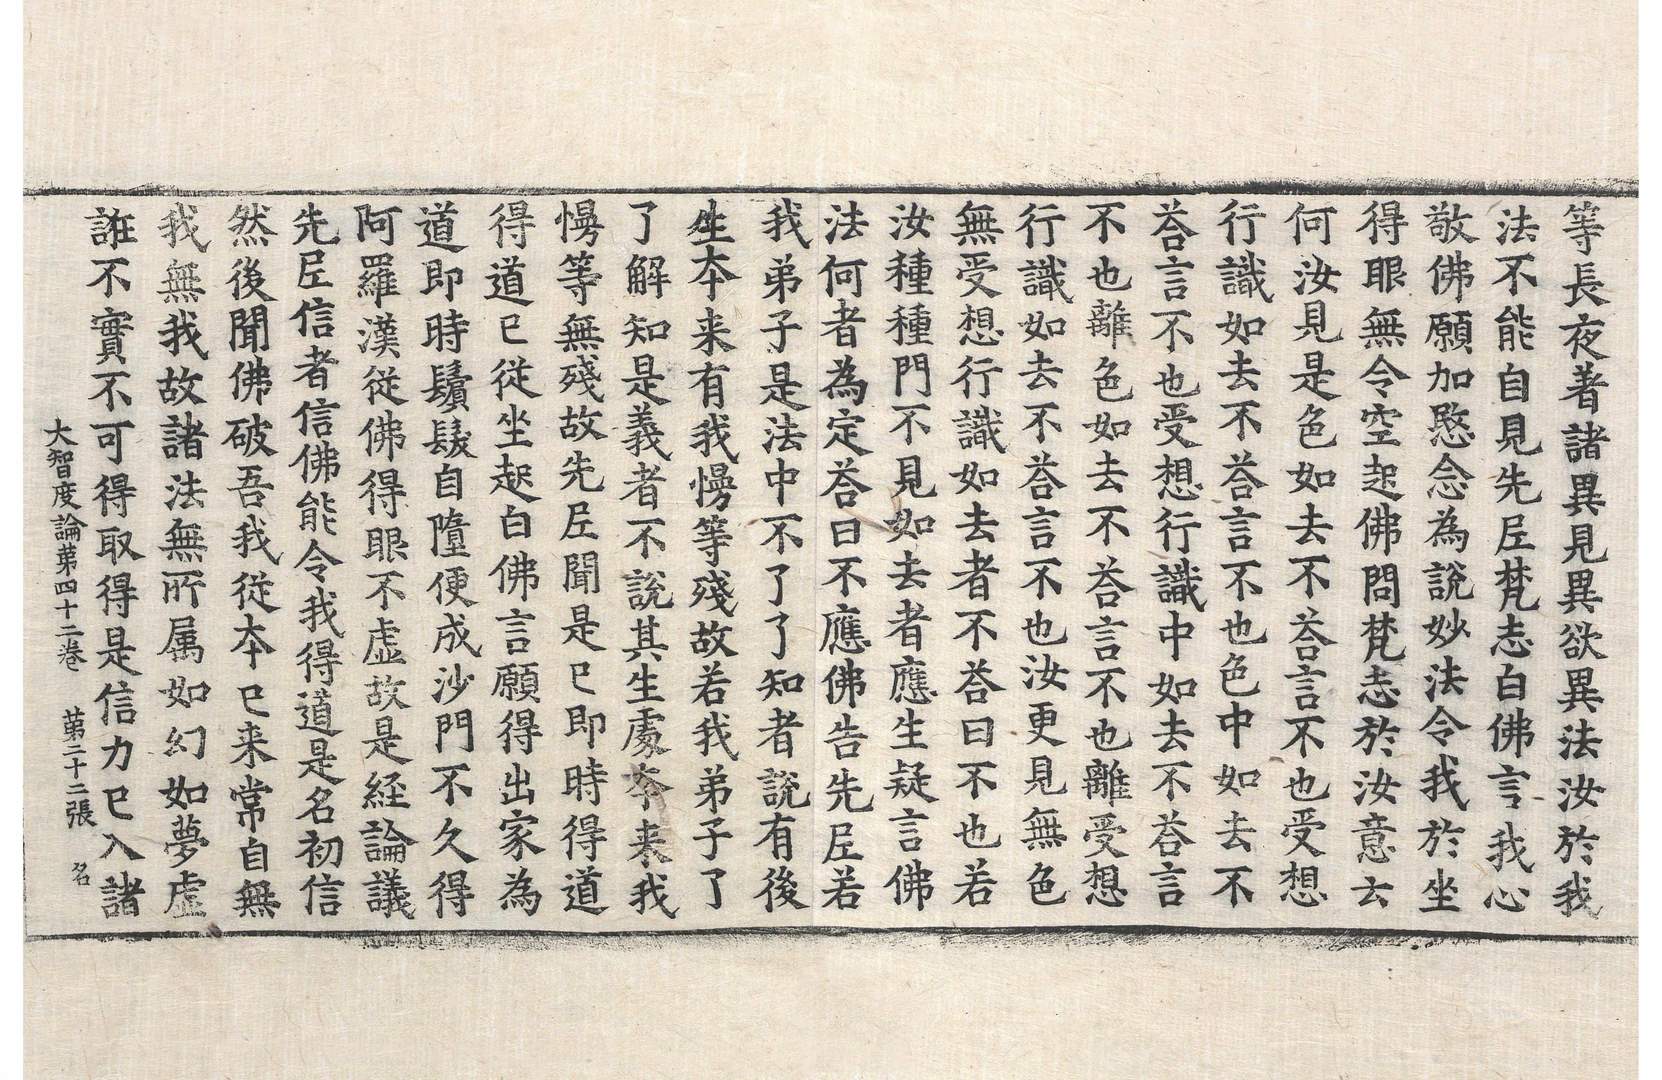 等長夜著諸異見異欲異法汝於我
法不能自見先𡰱梵志白佛言我心
敬佛願加愍念為說妙法令我於坐
得眼無令空起佛問梵志於汝意云
何汝見是色如去不荅言不也受想
行識如去不荅言不也色中如去不
荅言不也受想行識中如去不荅言
不也離色如去不荅言不也離受想
行識如去不荅言不也汝更見無色
無受想行識如去者不荅曰不也若
汝種種門不見如去者應生疑言佛
法何者為定荅曰不應佛告先𡰱若
我弟子是法中不了了知者說有後
生夲来有我慢等殘故若我弟子了
了解知是義者不說其生處夲来我
慢等無殘故先𡰱聞是已即時得道
得道已從坐起白佛言願得出家為
道即時鬚髮自墮便成沙門不久得
阿羅漢從佛得眼不虛故是経論議
先𡰱信者信佛能令我得道是名初信
然後聞佛破吾我從夲已来常自無
我無我故諸法無所属如幻如夢虛
誑不實不可得取得是信力已入諸
大智度論第四十二卷 第二十二張 名